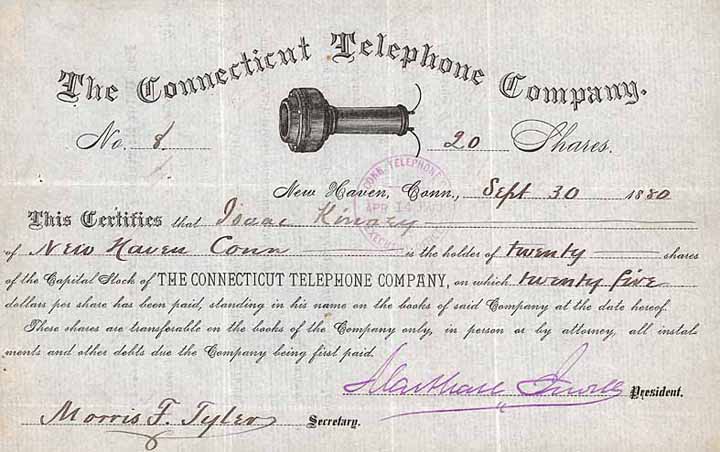 The Connecticut Telephone Company.
No. 8 20 Shares.
New Haven, Conn., Sept 30 1880
CONN. TELEPHONE
APR
This Certifies that Isaac
of New Haven Conn is the holder of twenty shares
of the Capital Stock of THE CONNECTICUT TELEPHONE COMPANY, on which twenty five
dollars per share has been paid, standing in his name on the books of said Company at the date hereof.
These shares are transferable on the books of the Company only, in person or by attorney, all instal
ments and other debts due the Company being first paid.
President.
Morris F. Tyler Secretary.